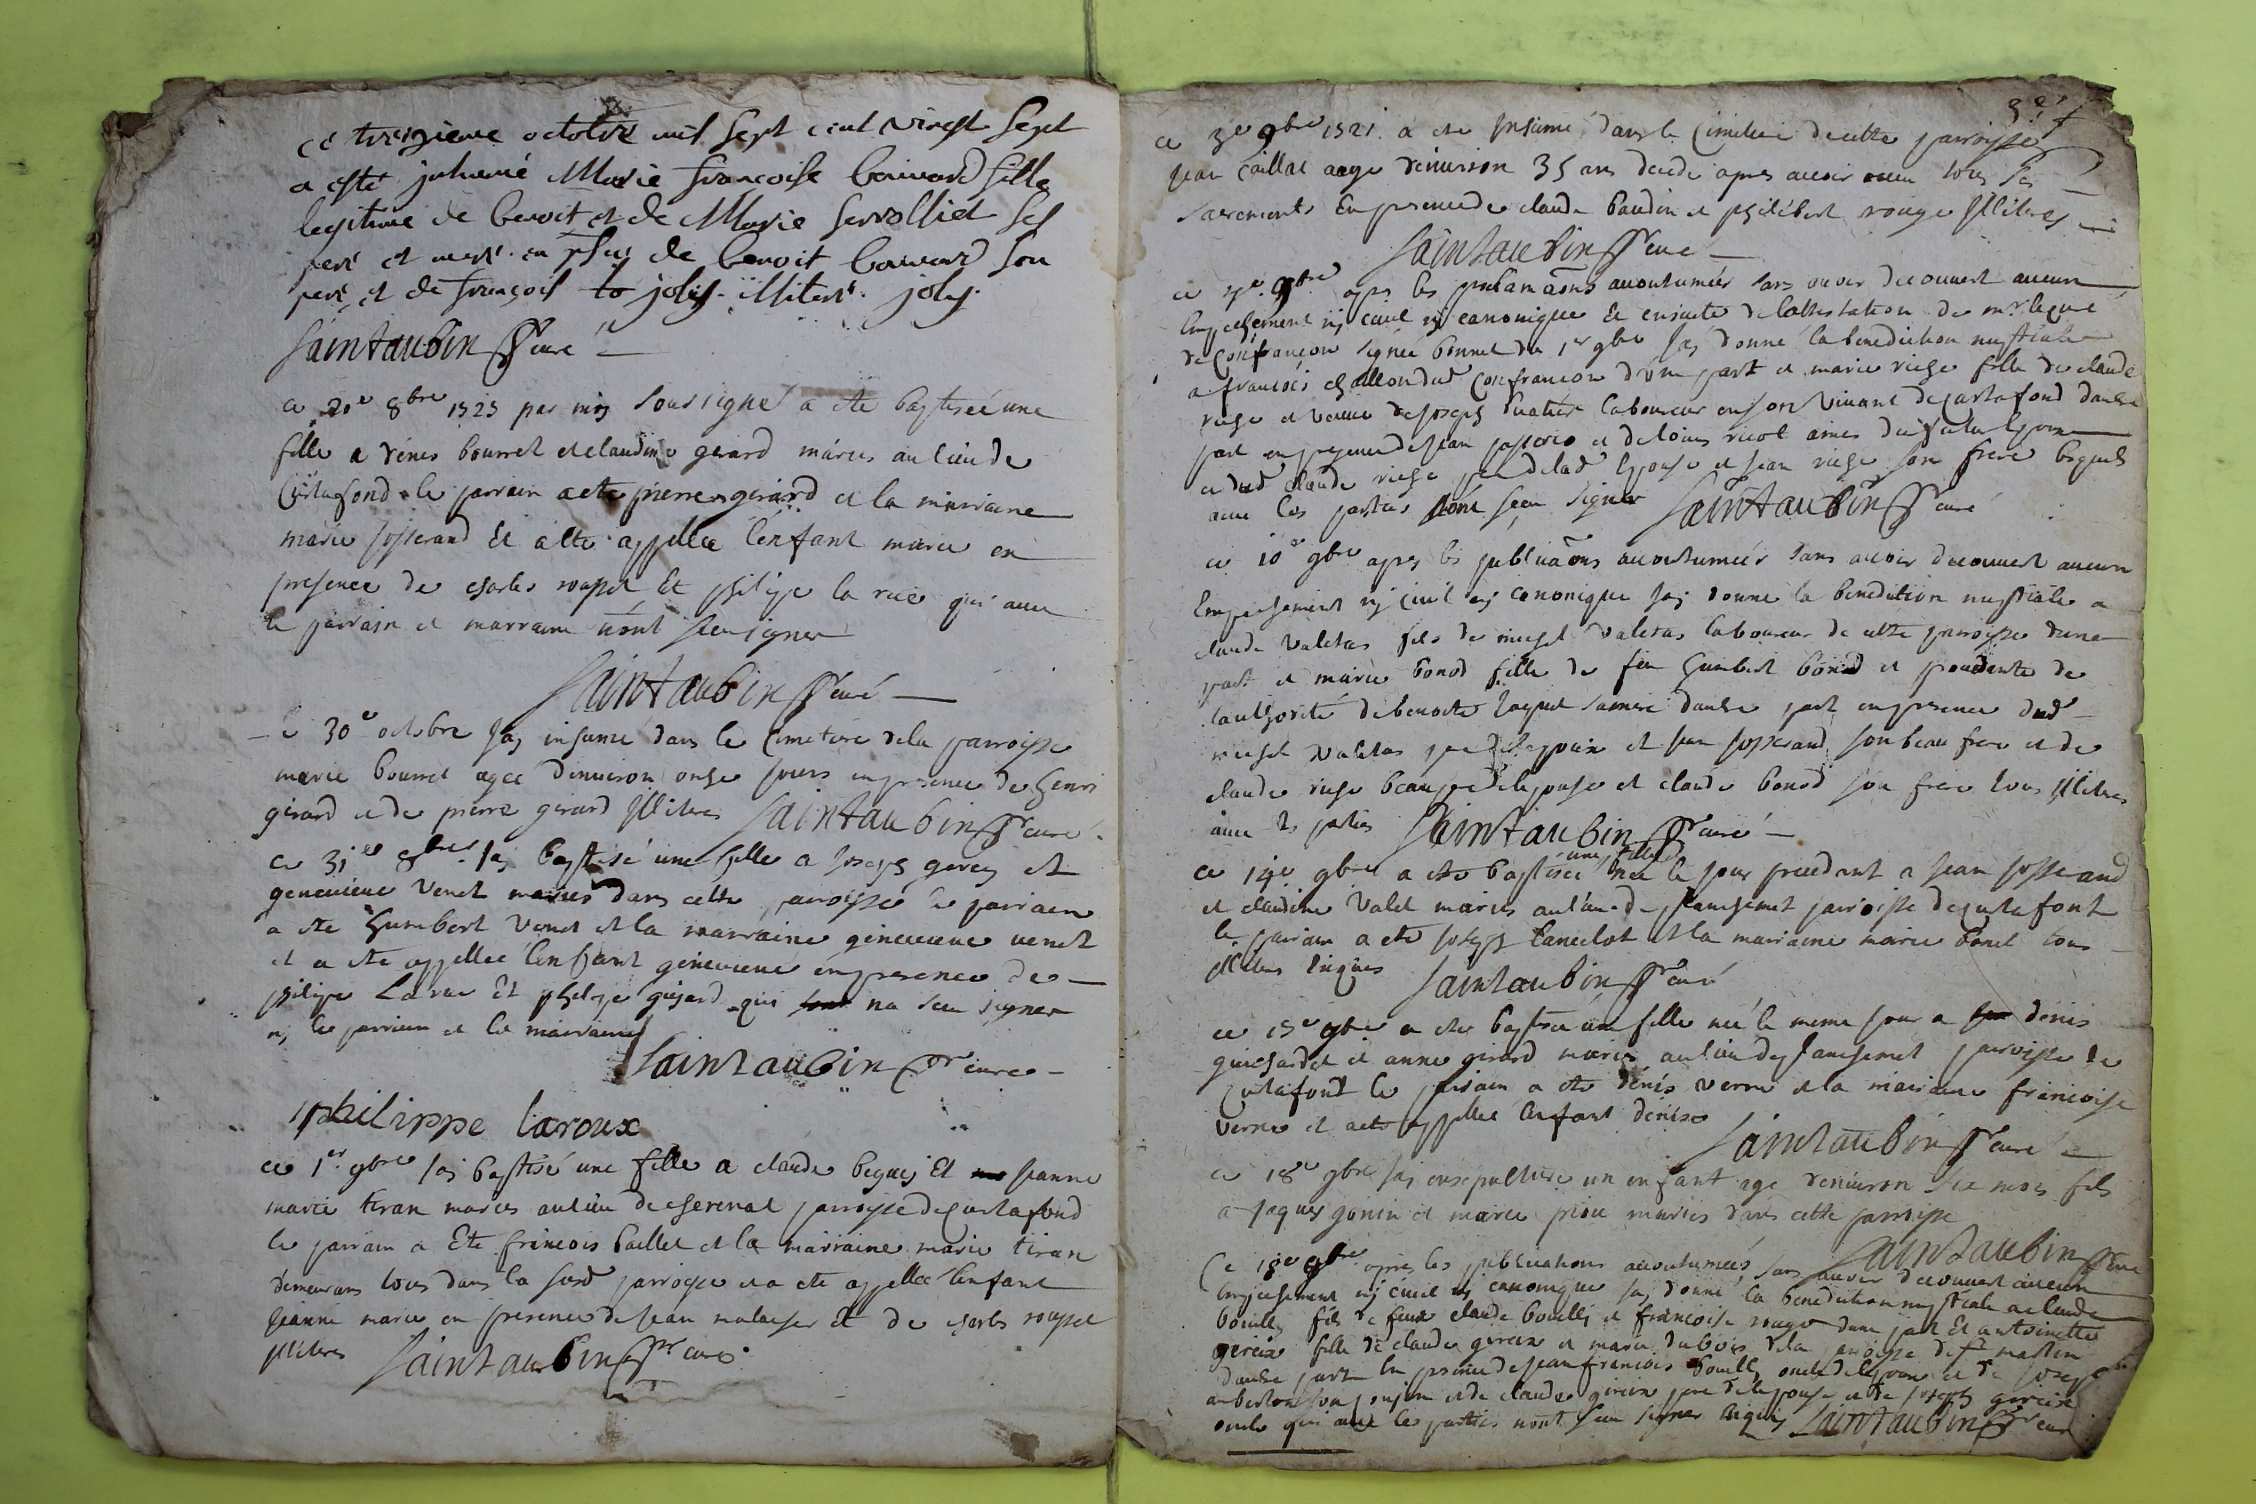 ce treizieme octobre mil sept cent vingt sept
a esté inhumé Marie francoise Bouvard fille
legitime de benoit et de Marie Servolliet ses
pere et mere en psce de benoit bouvard son
pere et de françois joly illiteré joly
Saintaubin pr curé
ce 20e 8bre 1727 par moy soussigné a ete baptiseé une
fille a dénis bourret et claudine gerard mariés au lieu de
Curtafond le parrain a ete pierre gérard et la marraine
marie josserand et a ete appellee l'enfant marie en
presence de charles roupet et philipe la rue qui avec
le parrain et marraine n'ont sceu signer
Saintaubin pr curé
ce 30e octobre jay inhumé dans le cimetiere de la parroisse
marie bourret agee denviron onze jours en presence de henri
gérard et de pierre gerard illitres Saintaubin pr curé
ce 31e 8bre jay baptisé une fille a joseph gerey et
genevieve venet mariés dans cette parroisse le parrain
a ete humbert venet et la marraine genevieve venet
et a ete appellee l'enfant genevieve en presence de
philipe Larue et phelipe gujard qui na sceu signer
ny le parrain et la marraine
Saintaubin pr curé
philippe laroux
ce 1er 9bre jay baptisé une fille a claude beguey et jeanne
marie tiran mariés au lieu de cherenal parroisse de curtafond
le parrain a ete francois paillet et la marraine marie tiran
demeurans tous dans la susd parroisse et a ete appelleé lenfant
jeanne marie en presence de jean malacher et de charles roupet
illitres Saintaubin pr curé
ce 3e 9bre 1727 a ete inhumé dans le cimitiere de cette parroisse
jean Caillat aagé denviron 35 ans decedé apres avoir receu tous ses
sacrements en presence de claude baudin et philibert rouge illitres
Saintaubin pr curé
ce 9bre apres les proclamaons accoutumées sans avoir decouvert aucun
empechement ny civil ny canonique et ensuite de lattestation de mr le curé
de Confrançon signeé bonnet du 1er 9bre jay donné la benediction nuptiale
a francois challon dud Confrancon d'une part et marie riche fille de claude
riche et veuve de joseph laboureur en son vivant de curtafond dautre
part en presence de jean et de loüis ricol amis dud
et dud claude riche pere de lad epouse et jean riche son frere lesquels
avec les parties n'ont sceu signer Saintaubin pr curé
ce 10e 9bre apres les publicaons accoutumées sans avoir decouvert aucun
empechement ny civil ny canonique jay donné la benediction nuptiale a
claude valetas fils de michel valetas laboureur de cette parroisse dune
part et marie bonod fille de feu humbert bonod et procedante de
lauthorité de benoite jaquet sa mere dautre part en presence dud
michel valetas pere de lepoux et jean josserand son beau frere et de
claude riche beaupere de lepouse et claude bonod son frere tous illitres
avec les parties Saintaubin pr curé
ce 14e 9bre a ete baptiseé une fille née le jour precedent a jean josserand
et claudine valet mariés au lieu de planchemet parroisse de curtafont
le parrain a ete joseph lancelot et la marraine marie bonet tous
illitres enquis Saintaubin pr curé
ce 15e 9bre a ete baptisé une fille née le meme jour a denis
guichardet et anne girard mariés au lieu de planchemet parroisse de
Curtafont le parrain a ete dénis verne et la marraine francoise
verne et a ete appellee lenfant denise
Saintaubin pr curé
ce 18e 9bre jay ensepulturé un enfant agé denviron six mois fils
a jaques gonin et marie mariés dans cette parroisse
Saintaubin pr curé
Ce 18e 9bre apres les publications accoutumées sans avoir decouvert aucun
empechement ny civil ny canonique jay donné la benediction nuptiale a claude
bouilly fils de feux claude bouilly et francoise rouge dune part et antoinette
gereix fille de claude gereix et marie dubois de la parroisse de st martin
dautre part en presence de jean francois bouilly oncle de lepoux et de joseph
et de claude gereix pere de lepouse et de joseph gereix
oncle qui avec les parties n'ont sceu signer enquis Saintaubin pr curé